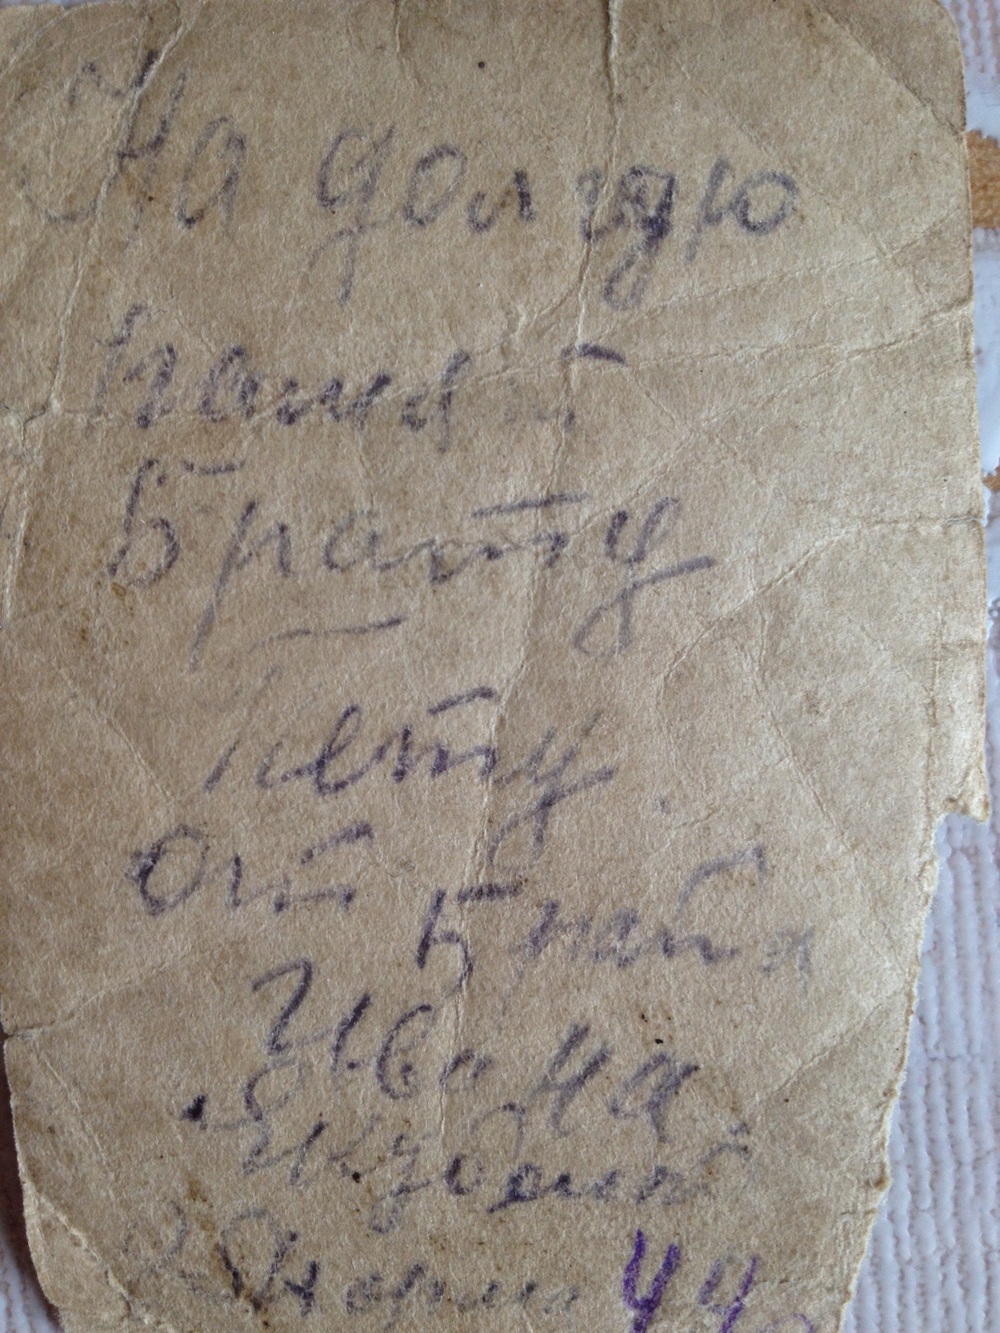 На долгую
памят
Брату
Пету
От Брата
Ивана
44